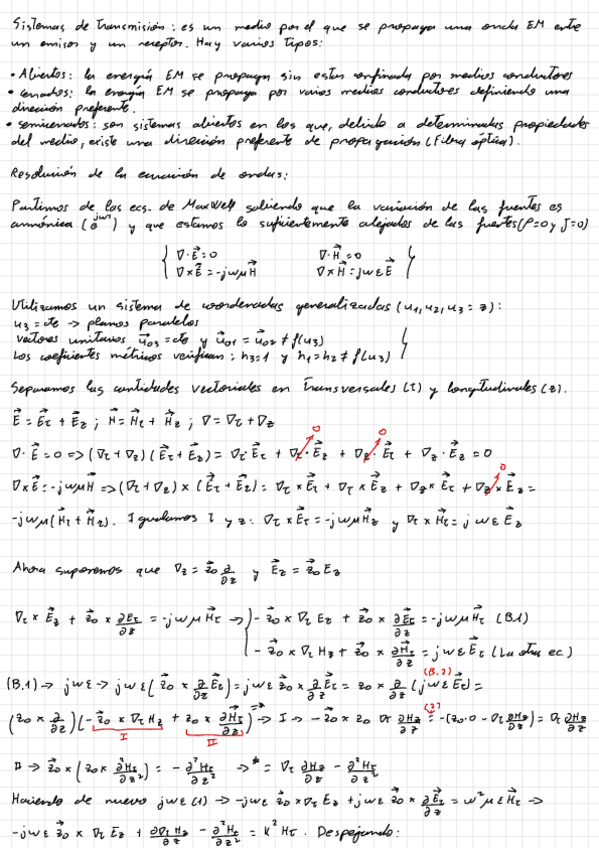 Sistemas de Transmisión: es un medio por el que se propaga una onda EM entre
un emisor y un receptor. Hay varios tipos:
• Abiertos: la energía EM se propaga sin estar confinada por medios conductores
• cerrados: la energía EM se propaga por varios medios conductores definiendo una
dirección preferente.
• semicerrados: son sistemas abiertos en los que, debido a determinadas propiedades
del medio, existe una dirección preferente de propagación (Fibra óptica).
Resolución de la ecuación de ondas:
Partimos de las ecs. de Maxwell sabiendo que la variación de las fuentes es
armónica (e^jωt) y que estamos lo suficientemente alejados de las fuentes (ρ=0 y J=0)
∇·E⃗=0    ∇·H⃗=0
∇×E⃗=-jωμH⃗    ∇×H⃗=jωεE⃗
Utilizamos un sistema de coordenadas generalizadas (u1, u2, u3 = z):
u3 = cte -> planos paralelos
vectores unitarios u⃗03 = cte y u⃗01 = u⃗02 ≠ f(u3)
Los coeficientes métricos verifican: h3=1 y h1=h2 ≠ f(u3)
Separamos las cantidades vectoriales en Transversales (t) y longitudinales (z).
E⃗ = E⃗t + E⃗z ; H⃗ = H⃗t + H⃗z ; ∇ = ∇t + ∇z
0 0
∇·E⃗ = 0 => (∇t + ∇z)(E⃗t + E⃗z) = ∇t·E⃗t + ∇t·E⃗z + ∇z·E⃗t + ∇z·E⃗z = 0
0
∇×E⃗ = -jωμH⃗ => (∇t + ∇z) × (E⃗t + E⃗z) = ∇t × E⃗t + ∇t × E⃗z + ∇z × E⃗t + ∇z × E⃗z =
-jωμ(H⃗t + H⃗z). Igualamos t y z: ∇t × E⃗t = -jωμH⃗z y ∇t × H⃗t = jωεE⃗z
Ahora suponemos que ∇z = z⃗0 ∂/∂z y E⃗z = z⃗0 Ez
∇t × E⃗z + z⃗0 × ∂E⃗t/∂z = -jωμH⃗t -> - z⃗0 × ∇t Ez + z⃗0 × ∂E⃗t/∂z = -jωμH⃗t (B.1)
- z⃗0 × ∇t Hz + z⃗0 × ∂H⃗t/∂z = jωεE⃗t (La otra ec.)
(B.2)
(B.1) -> jωε -> jωε(z⃗0 × ∂/∂z E⃗t) = jωε z⃗0 × ∂/∂z E⃗t = z0 × ∂/∂z (jωεE⃗t) =
(2)
(z0 × ∂/∂z)(-z⃗0 × ∇t Hz + z0 × ∂H⃗t/∂z) =* -> I -> -z⃗0 × z0 ∇t ∂Hz/∂z = -(z0·0 - ∇t ∂Hz/∂z) = ∇t ∂Hz/∂z
I II
II -> z⃗0 × (z0 × ∂²H⃗t/∂z²) = - ∂²H⃗t/∂z² -> * = ∇t ∂Hz/∂z - ∂²Ht/∂z²
Haciendo de nuevo jωε (1) -> -jωε z⃗0 × ∇t Ez + jωε z⃗0 × ∂E⃗t/∂z = ω²μεH⃗t ->
-jωε z⃗0 × ∇t Ez + ∂∇t Hz/∂z - ∂²H⃗t/∂z² = K² Ht . Despejando: